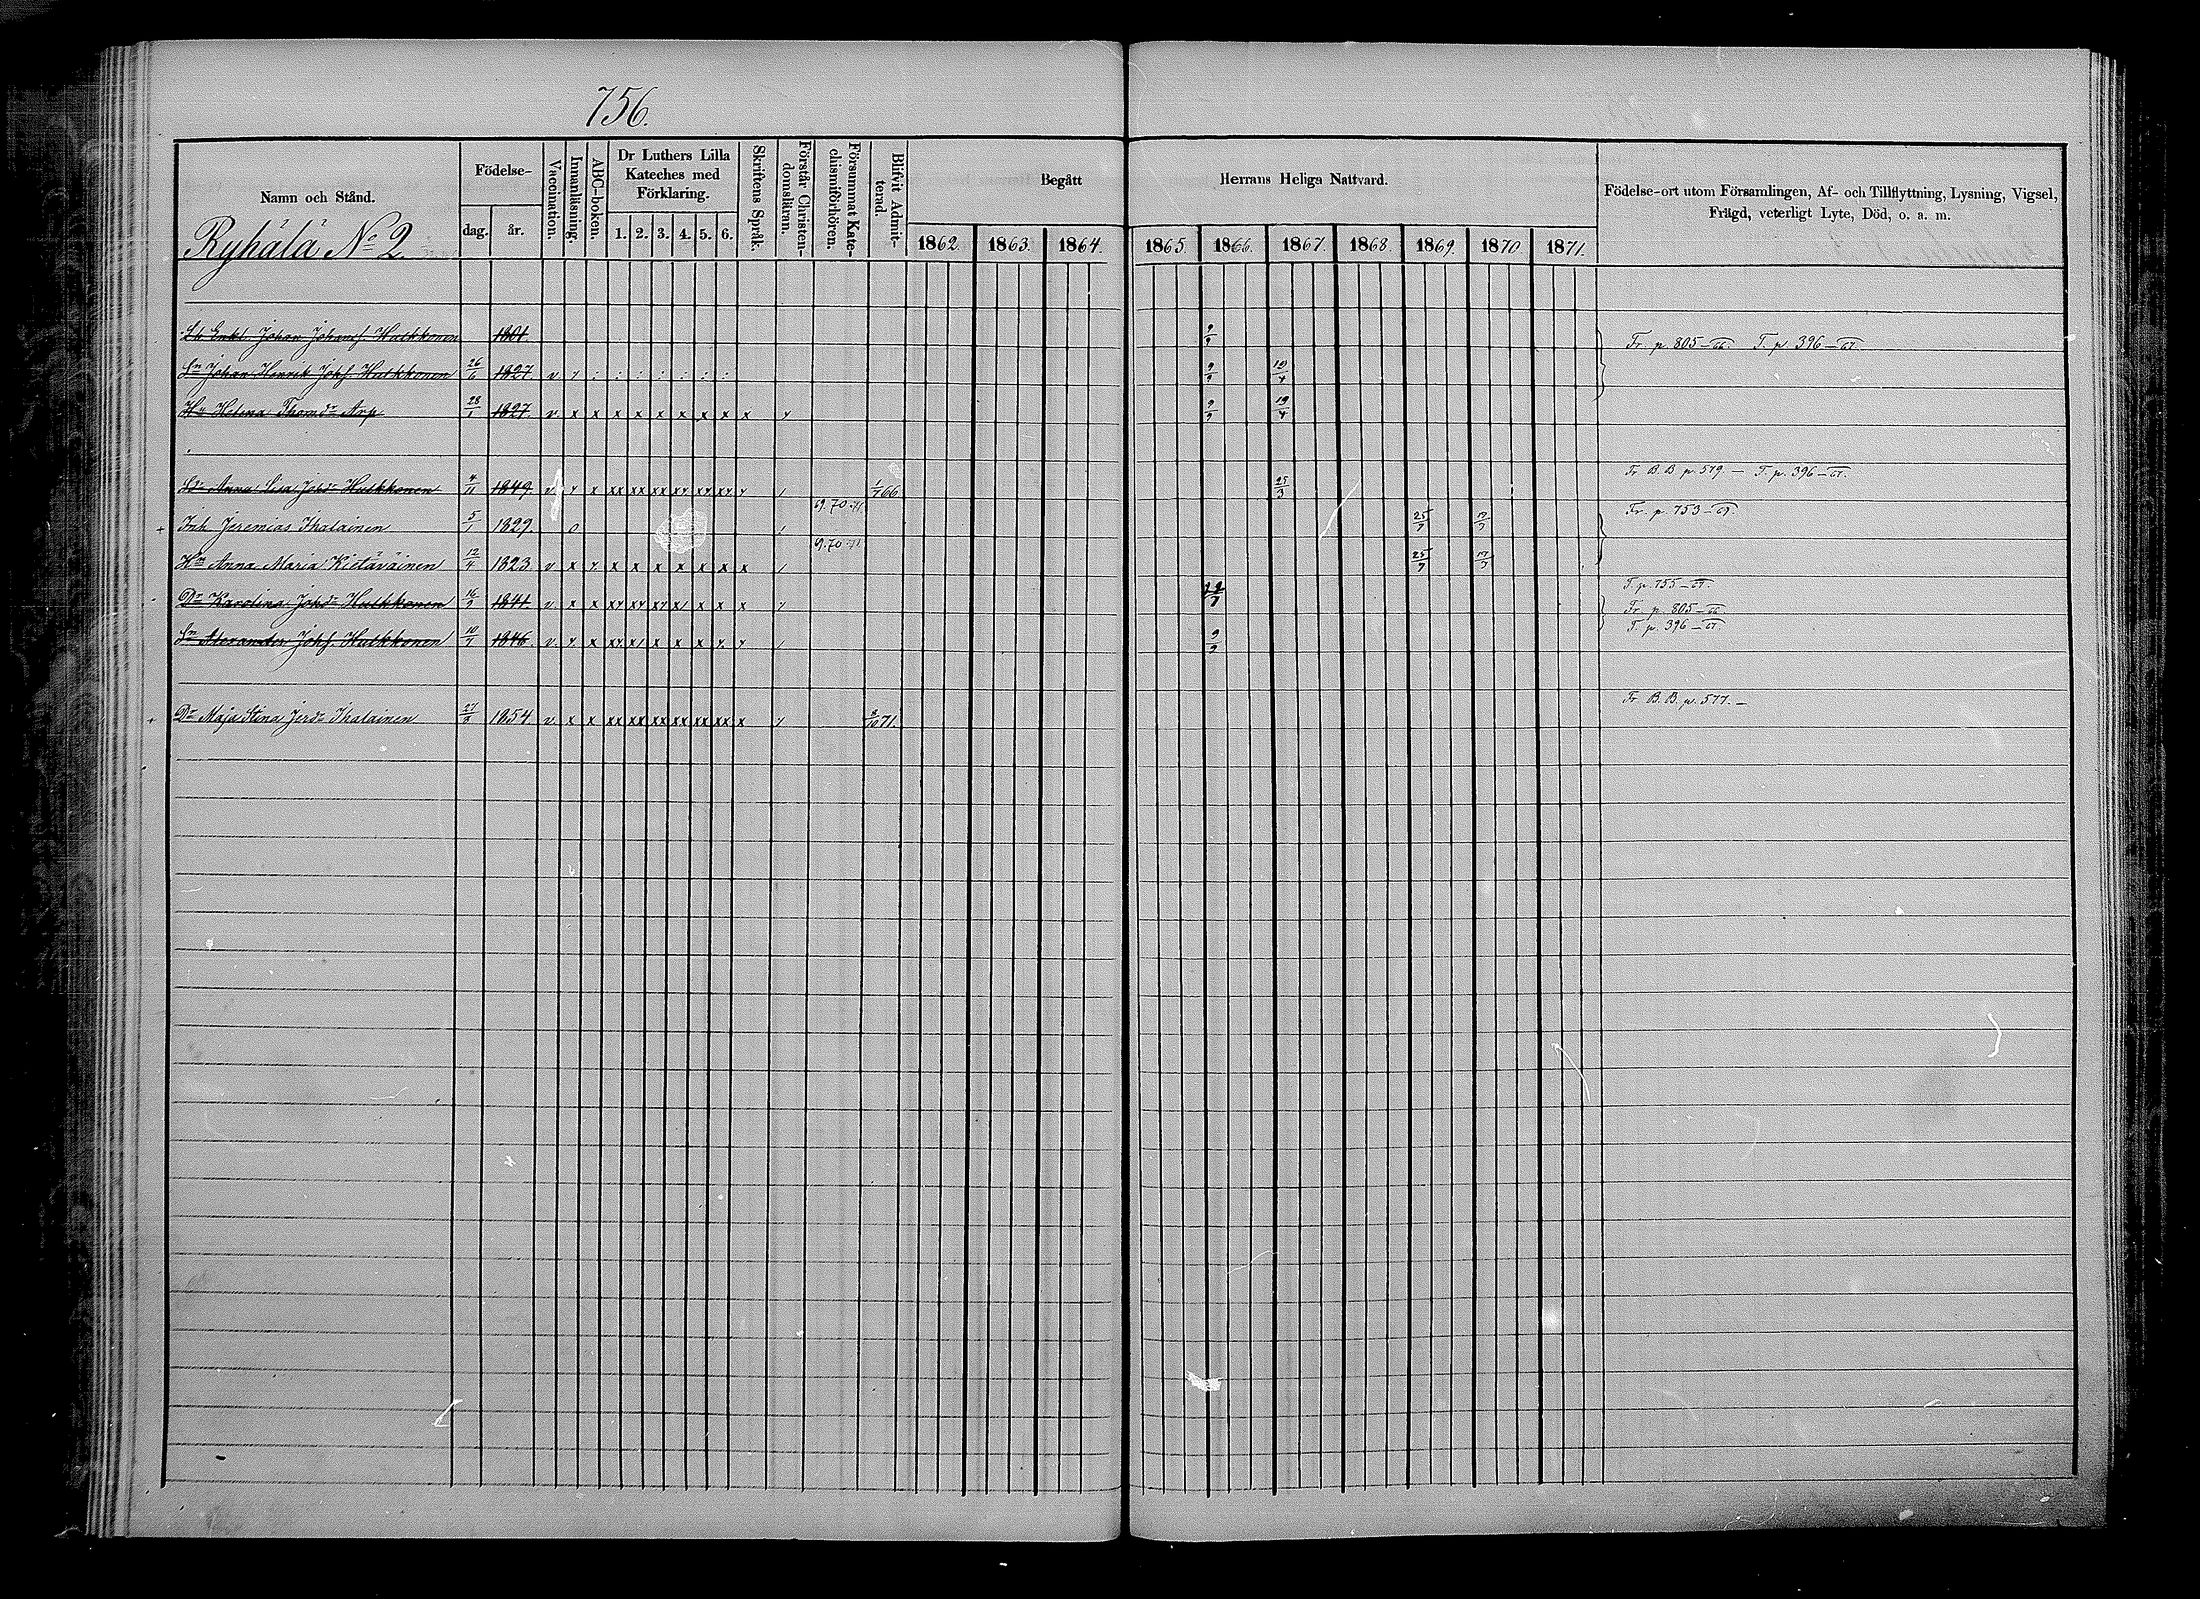 756.
Namn och Stånd.
Födelse-
dag.
år.
Vaccination.
Innanläsning.
ABC-boken.
Dr Luthers Lilla
Kateches med
Förklaring.
1. 2. 3. 4. 5. 6.
Skriftens Språk.
Förstår Christen-
domsläran.
Försummat Kate-
chismiförhören.
Blifvit Admit-
terad.
Begått Herrans Heliga Nattvard.
1862. 1863. 1864. 1865. 1866. 1867. 1868. 1869. 1870. 1871.
Födelse-ort utom Församlingen, Af- och Tillflyttning, Lysning, Vigsel,
Frägd, veterligt Lyte, Död, o. a. m.
Ryhälä No 2.
Johan Johansf. Hulkkonen 1801. 9/9 Fr. p. 805-66. T. p. 396-67.
Sn Johan Henrik Johsf. Hulkkonen 26/6 1827 v 9/9 19/4
Hu Helena Thomdr Arp 28/1 1827. v x x x x x x x x x 9/9 19/4
Dr Anna Lisa Johdr Hulkkonen 4/11 1849. v x xx xx xx xx xx xx 1/7 66 25/3 Fr. B. B. p. 519. - T. p. 396-67.
Inh. Jeremias Ihalainen 5/1 1829. 0 69.70.71 25/7 Fr. p. 753-69.
Hu Anna Maria Kietäväinen 12/4 1823. v x x x x x x x x 69.70.71 25/7
Dr Karolina Johdr Hulkkonen 16/9 1841 v x x x x x T. p. 755-67.
Fr. p. 805-66
Sn Alexander Johsf. Hulkkonen 10/4 1846. v. x x x x 9/9 T. p. 396-67.
Dr Maja Stina Jerdr Ihalainen 27/8 1854 v. x x xx xx xx xx xx xx x 8/10 71. Fr. B. B. p. 577. -